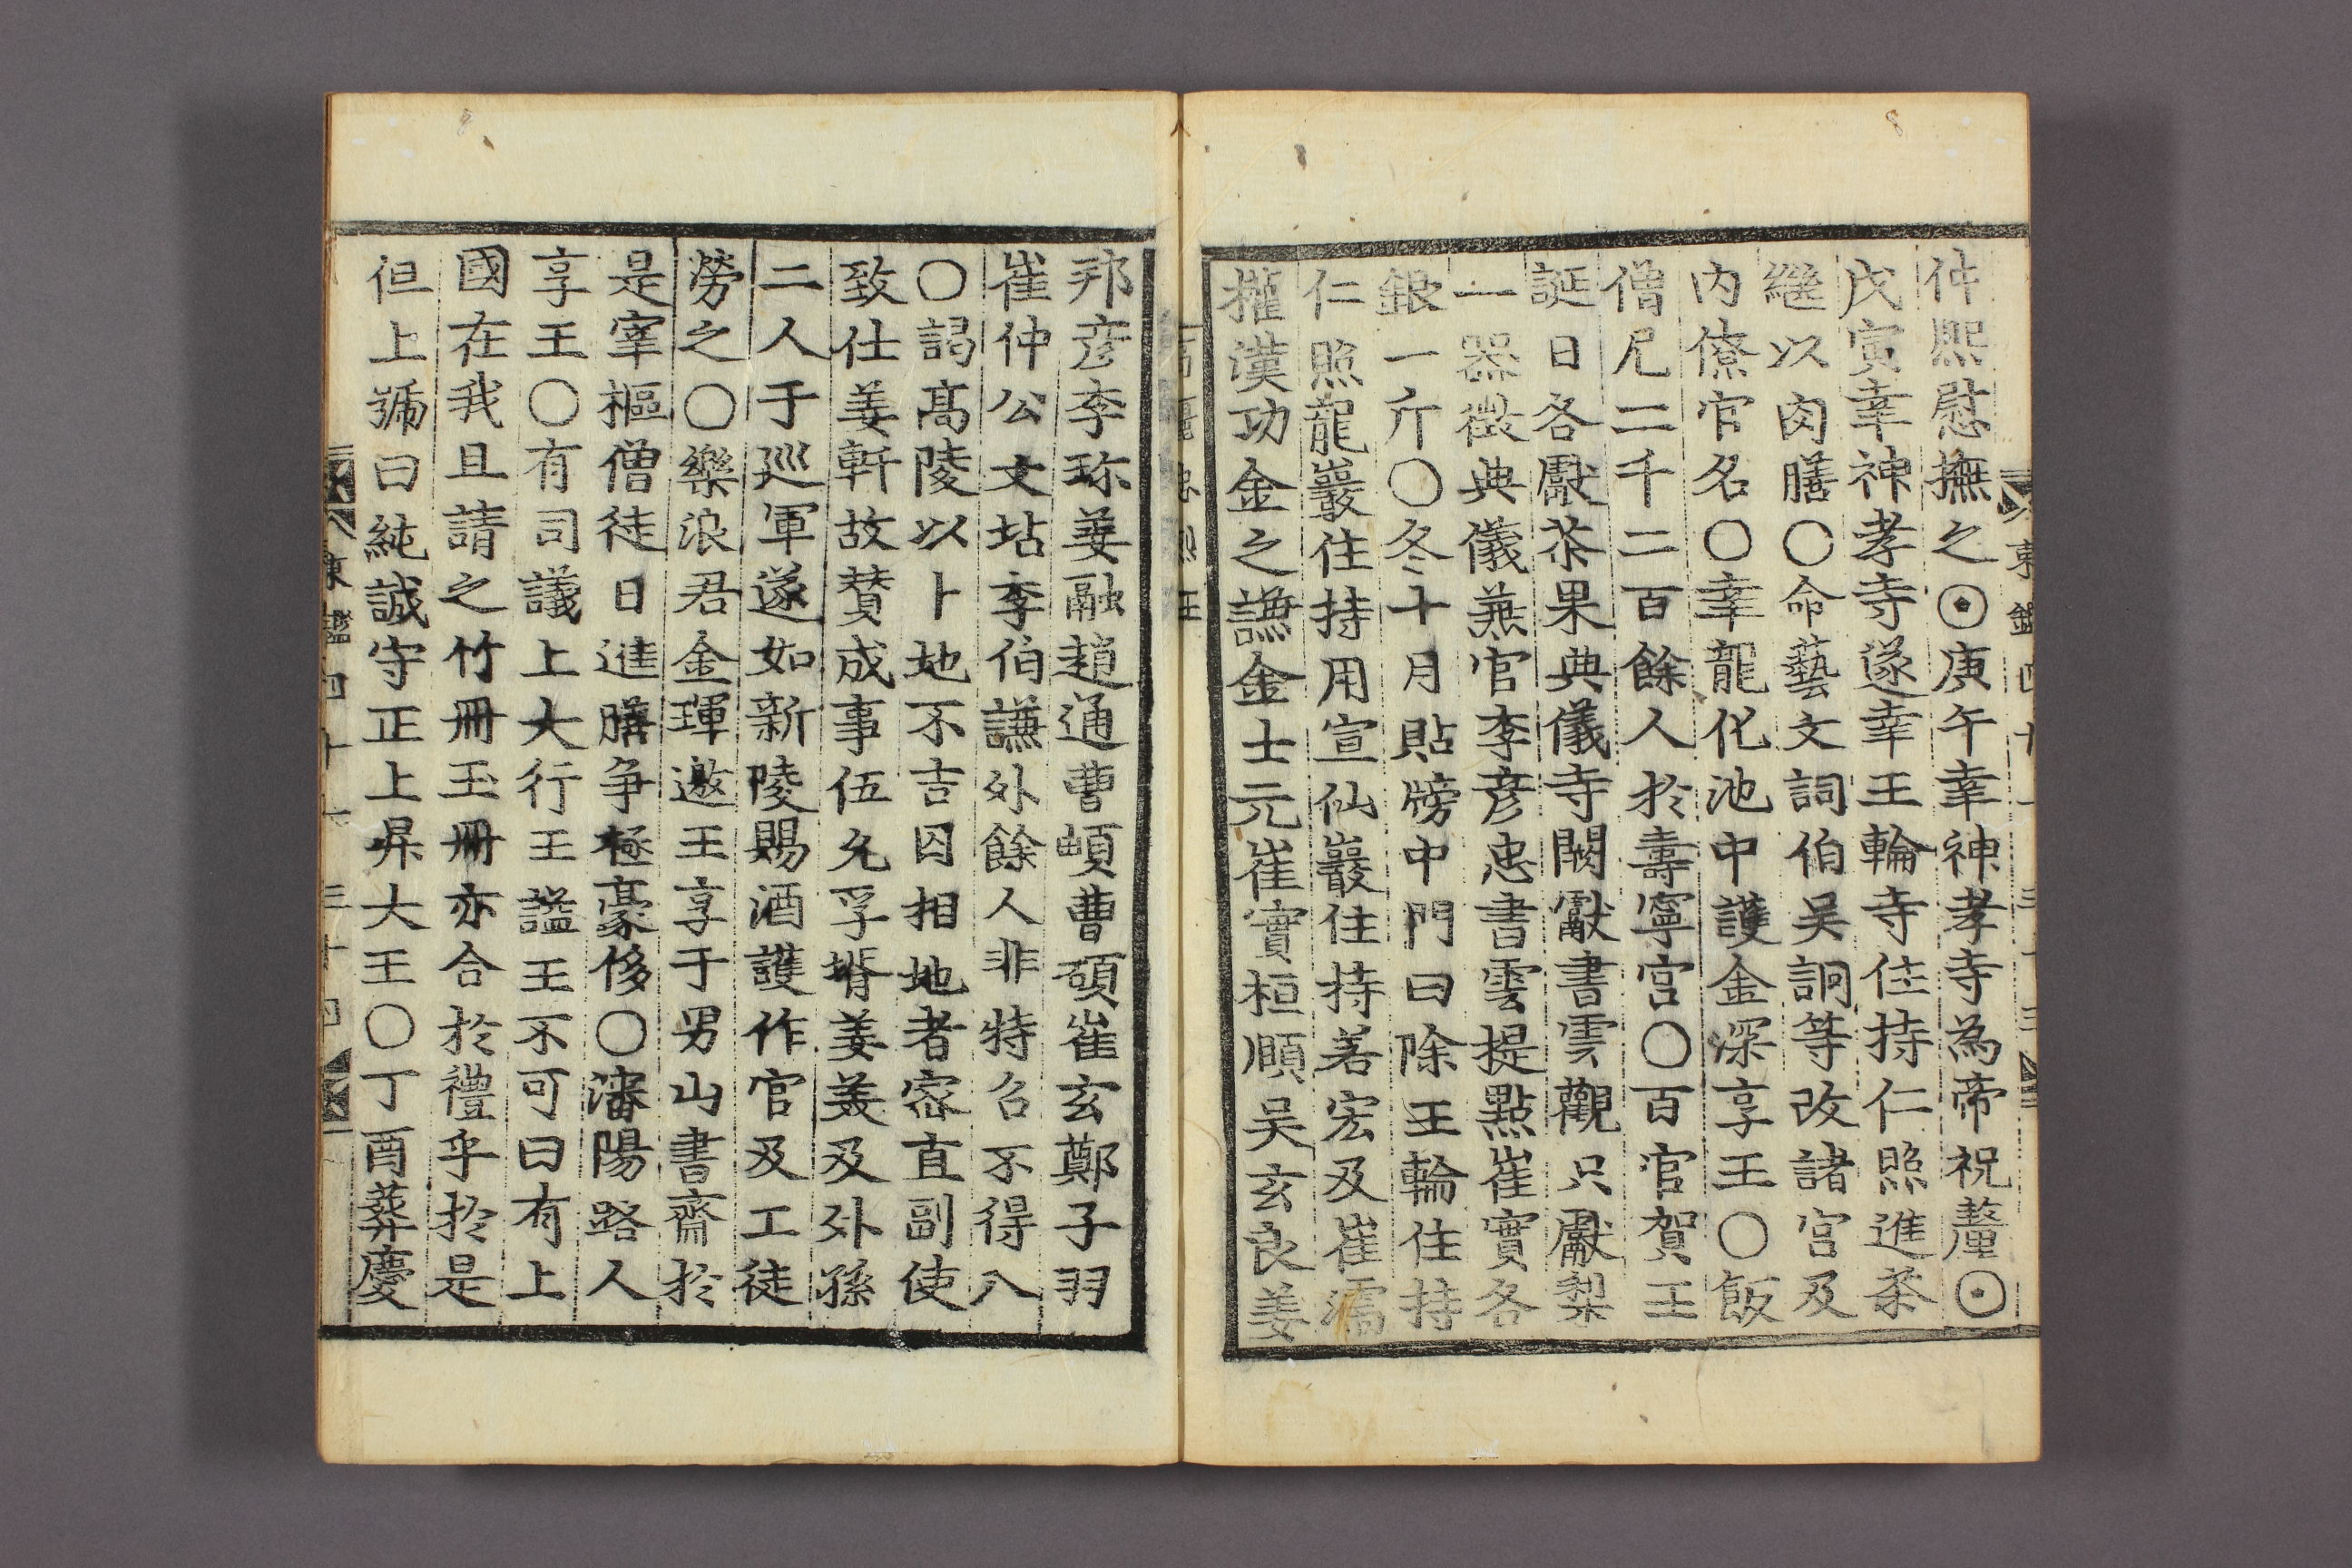 仲熙慰撫之⊙庚午幸神孝寺為帝祝釐⊙
戊寅幸神孝寺遂幸王輪寺住持仁照進茶
繼以肉膳○命藝文詞伯吴詗等改諸宮及
内僚官名○幸龍化池中護金深享王○飯
僧尼二千二百餘人於壽寧宮○百官賀王
誕日各獻茶果典儀寺闕獻書雲觀只獻梨
一器徵典儀兼官李彦忠書雲提點崔實各
銀一斤○冬十月貼牓中門曰除王輪住持
仁照龍巖住持用宣仙巖住持若宏及崔濡
權漢功金之謙金士元崔實桓頤吴玄良姜
邦彦李珎姜融趙通曹頔曹碩崔玄鄭子羽
崔仲公文坫李伯謙外餘人非特召不得入
○謁髙陵以卜地不吉囚相地者密直副使
致仕姜軒故賛成事伍允孚壻姜義及外孫
二人于廵軍遂如新陵賜酒護作官及工徒
勞之○樂浪君金琿邀王享于男山書齋於
是宰樞僧徒日進膳争極豪侈○瀋陽路人
享王○有司議上大行王謚王不可曰有上
國在我且請之竹冊玉冊亦合於禮乎於是
但上號曰純誠守正上昇大王○丁酉葬慶